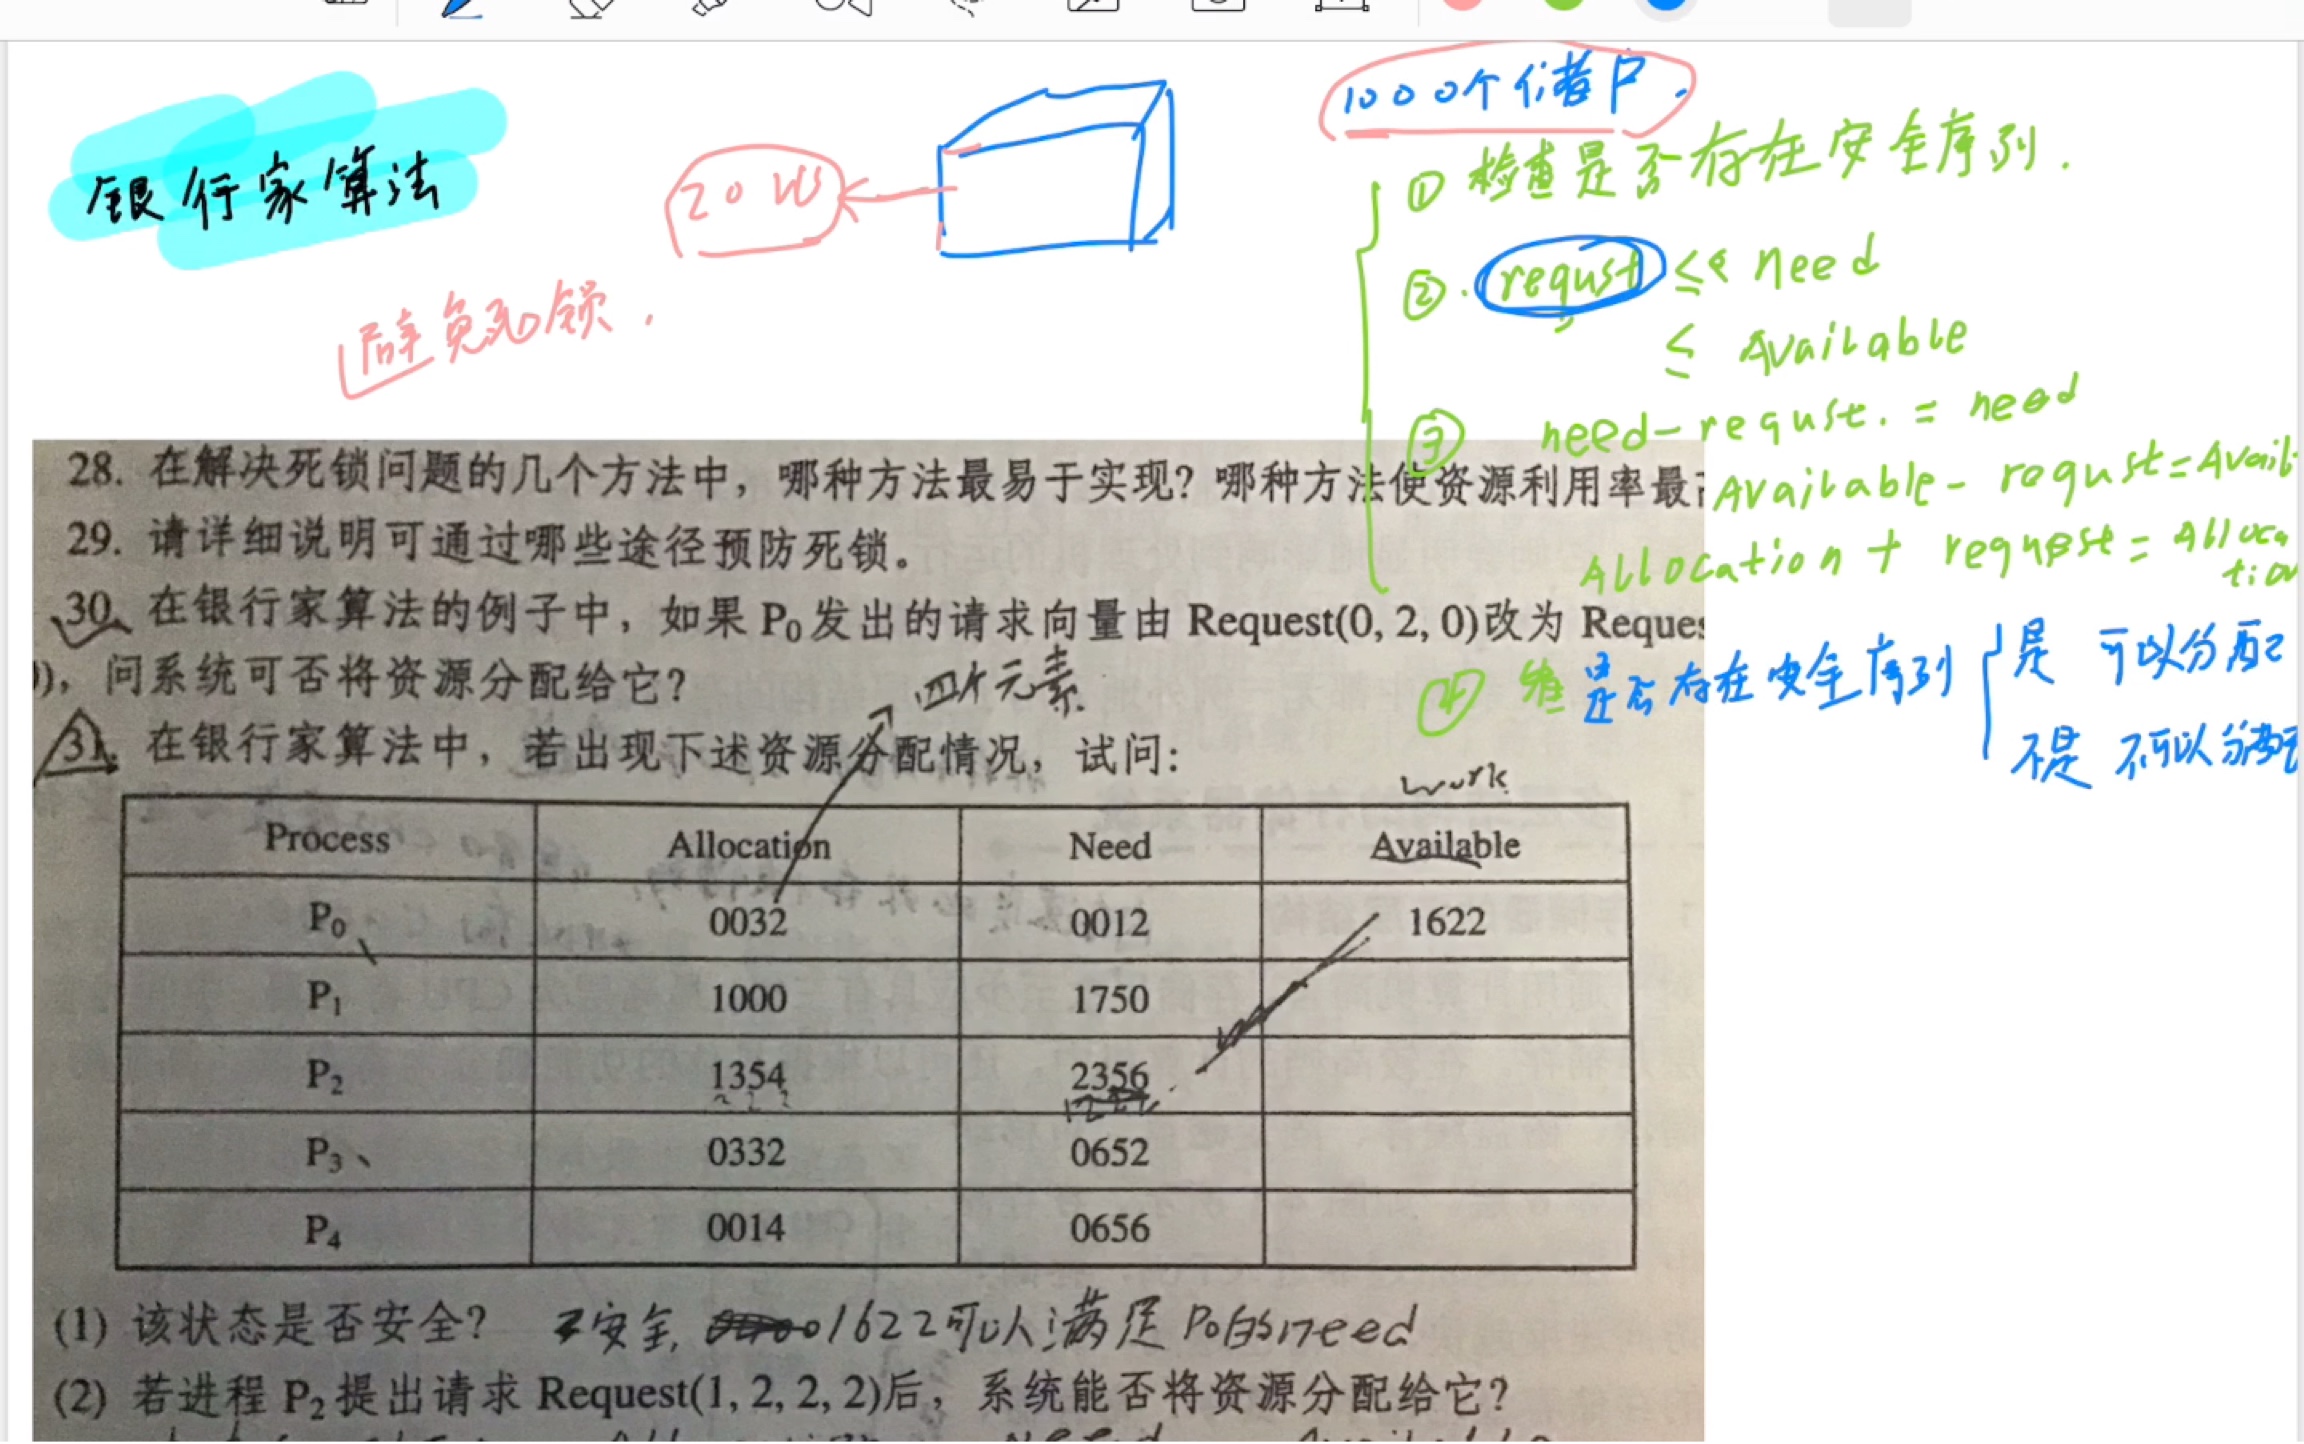 银行家算法
20W
1000个储户.
避免死锁.
① 检查是否存在安全序列.
②. requst ≤ need
≤ Available
③ need - requst. = need
Available - requst = Avail
Allocation + request = Alloca
tion
④ 是否存在安全序列
是 可以分配
不是 不可以分配
28. 在解决死锁问题的几个方法中，哪种方法最易于实现？哪种方法使资源利用率最
29. 请详细说明可通过哪些途径预防死锁。
30. 在银行家算法的例子中，如果 P0 发出的请求向量由 Request(0, 2, 0)改为 Reque
)，问系统可否将资源分配给它？
四个元素
31. 在银行家算法中，若出现下述资源分配情况，试问：
work
Process Allocation Need Available
P0 0032 0012 1622
P1 1000 1750
P2 1354 2356
P3 0332 0652
P4 0014 0656
(1) 该状态是否安全？ 安全, 1622可以满足P0的need
(2) 若进程 P2 提出请求 Request(1, 2, 2, 2)后，系统能否将资源分配给它？